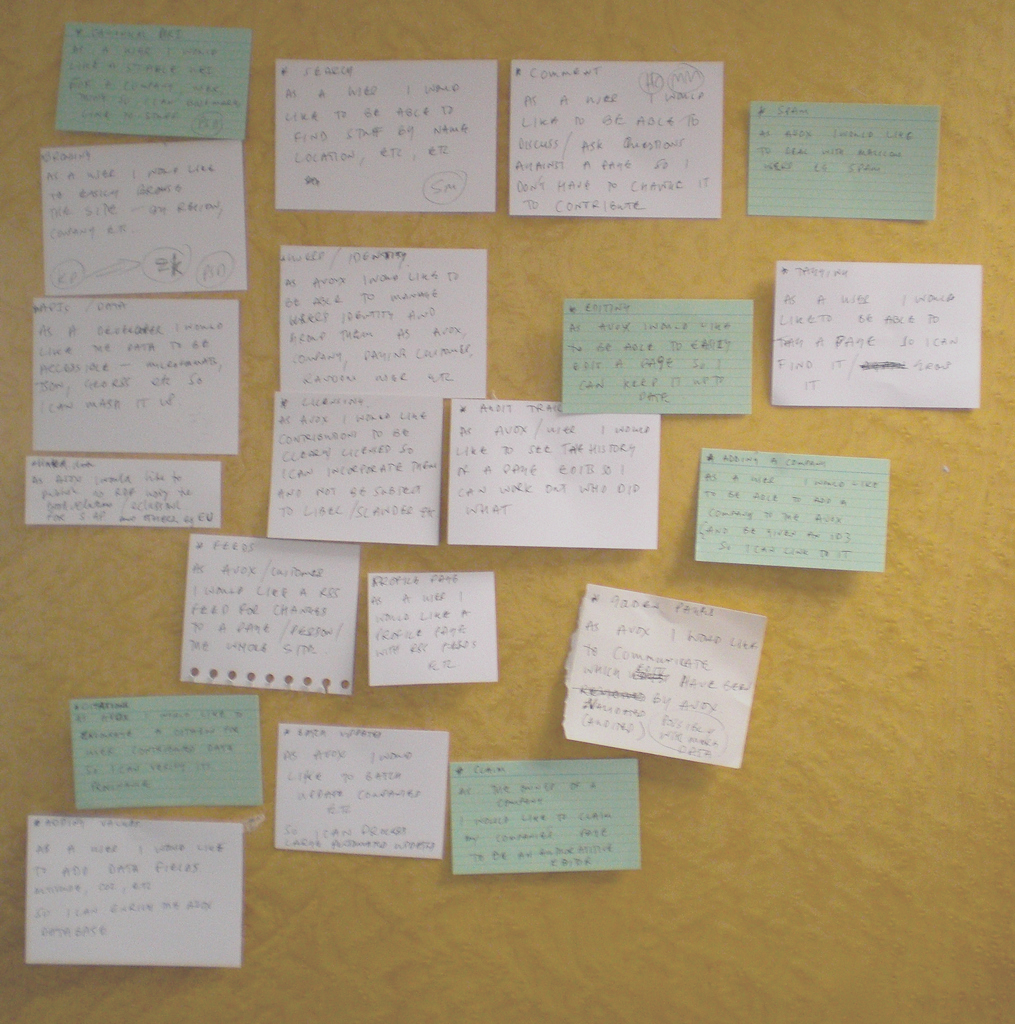 AS A USER I WOULD
LIKE A STABLE URI
FOR A COMPANY
* SEARCH
AS A USER I WOULD
LIKE TO BE ABLE TO
FIND STAFF BY NAME
LOCATION, ETC, ETC
SM
* COMMENT
AS A USER I WOULD
LIKE TO BE ABLE TO
DISCUSS / ASK QUESTIONS
AGAINST A PAGE SO I
DON'T HAVE TO CHANGE IT
TO CONTRIBUTE
* SPAM
AS AVOX I WOULD LIKE
TO DEAL WITH MALICIOUS
USERS EG SPAM
BROWSING
AS A USER I WOULD LIKE
TO EASILY BROWSE
THE SITE - BY REGION,
COMPANY ETC.
USERS / IDENTITY
AS AVOX I WOULD LIKE TO
BE ABLE TO MANAGE
USERS IDENTITY AND
GROUP THEM AS AVOX,
COMPANY, PAYING CUSTOMER,
RANDOM USER ETC
* TAGGING
AS A USER I WOULD
LIKE TO BE ABLE TO
TAG A PAGE SO I CAN
FIND IT / GROUP
IT
* EDITING
AS AVOX I WOULD LIKE
TO BE ABLE TO EASILY
EDIT A PAGE SO I
CAN KEEP IT UP TO
DATE
/ DATA
AS A DEVELOPER I WOULD
LIKE THE DATA TO BE
ACCESSIBLE - MICROFORMATS,
JSON, GEORSS ETC SO
I CAN MASH IT UP
* LICENSING
AS AVOX I WOULD LIKE
CONTRIBUTIONS TO BE
CLEARLY LICENSED SO
I CAN INCORPORATE THEM
AND NOT BE SUBJECT
TO LIBEL / SLANDER ETC
* AUDIT TRAIL
AS AVOX / USER I WOULD
LIKE TO SEE THE HISTORY
OF A PAGE EDITS SO I
CAN WORK OUT WHO DID
WHAT
* ADDING A COMPANY
AS A USER I WOULD LIKE
TO BE ABLE TO ADD A
COMPANY TO THE AVOX
(AND BE GIVEN AN ID)
SO I CAN LINK TO IT
As avox I would like to
publish as RDF using the
* FEEDS
AS AVOX / CUSTOMER
I WOULD LIKE A RSS
FEED FOR CHANGES
TO A PAGE / PERSON /
THE WHOLE SITE
PROFILE PAGE
AS A USER I
WOULD LIKE A
PROFILE PAGE
WITH RSS FEEDS
ETC
* PAGES
AS AVOX I WOULD LIKE
TO COMMUNICATE
WHICH EDITS HAVE BEEN
REVIEWED BY AVOX
VALIDATED
(AUDITED)
* CITATIONS
AS AVOX I WOULD LIKE TO
A CITATION FOR
USER CONTRIBUTED DATA
SO I CAN VERIFY ITS
PROVENANCE
* DATA UPDATES
AS AVOX I WOULD
LIKE TO BATCH
UPDATE COMPANIES
ETC
SO I CAN PROCESS
LARGE AUTOMATED UPDATES
* CLAIM
AS THE OWNER OF A
COMPANY
I WOULD LIKE TO CLAIM
MY COMPANIES PAGE
TO BE AN AUTHORITATIVE
EDITOR
* ADDING VALUES
AS A USER I WOULD LIKE
TO ADD DATA FIELDS
ETC
SO I CAN ENRICH THE AVOX
DATABASE